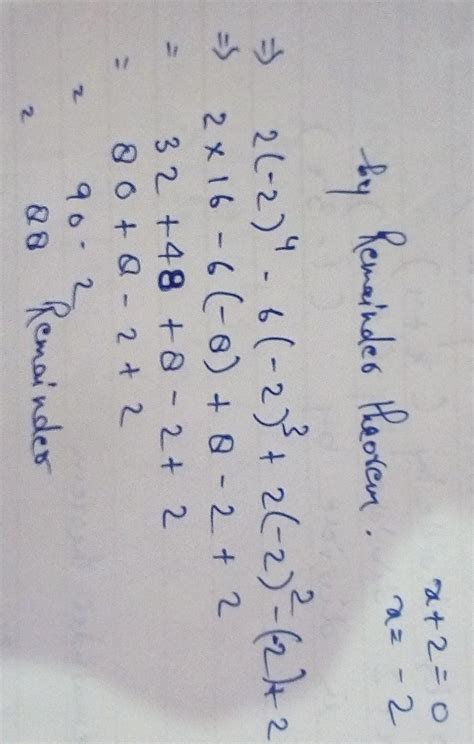 x+2=0
x=-2
by Remainder theorem.
⇒ 2(-2)⁴ - 6(-2)³ + 2(-2)² - (-2)+2
⇒ 2×16 - 6(-8) + 8 - 2 + 2
= 32 + 48 + 8 - 2 + 2
= 80 + 8 - 2 + 2
= 90 - 2
= 88 Remainder